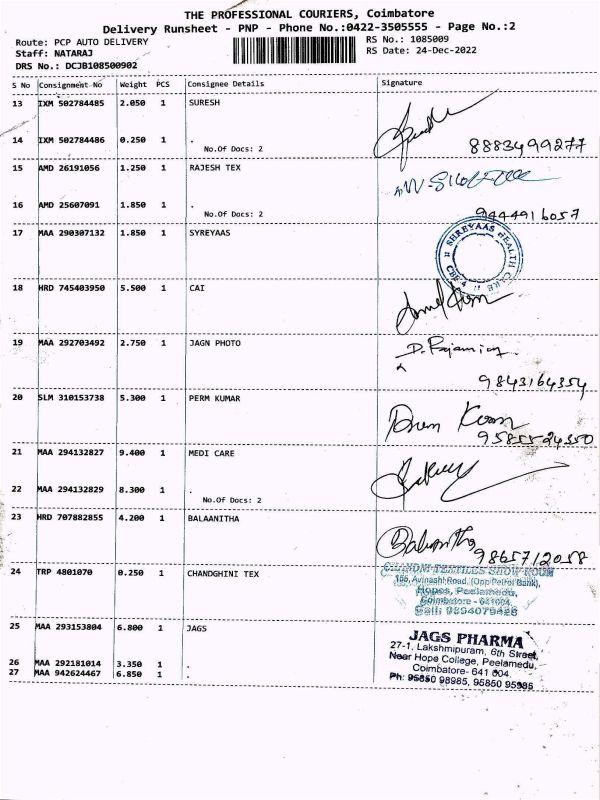 THE PROFESSIONAL COURIERS, Coimbatore
Delivery Runsheet - PNP - Phone No.:0422-3505555 - Page No.:2
Route: PCP AUTO DELIVERY
RS No.: 1085009
Staff: NATARAJ
RS Date: 24-Dec-2022
DRS No.: DCJB108500902
S No Consignment No Weight PCS Consignee Details Signature
13 IXM 502784485 2.050 1 SURESH
14 IXM 502784486 0.250 1 .
No.Of Docs: 2
8883499277
15 AMD 26191056 1.250 1 RAJESH TEX
16 AMD 25607091 1.850 1 .
No.Of Docs: 2
9444916057
17 MAA 290307132 1.850 1 SYREYAAS
SHREYAAS HEALTH CARE
CBE-4
18 HRD 745403950 5.500 1 CAI
19 MAA 292703492 2.750 1 JAGN PHOTO
9843164354
20 SLM 310153738 5.300 1 PERM KUMAR
9585524350
21 MAA 294132827 9.400 1 MEDI CARE
22 MAA 294132829 8.300 1 .
No.Of Docs: 2
23 HRD 707882855 4.200 1 BALAANITHA
Balaanitha
9865712058
24 TRP 4801070 0.250 1 CHANDGHINI TEX
CHANDNI TEXTILES SHOW ROOM
166, Avinashi Road, (Opp Petrol Bank),
Hopes, Peelamedu,
Coimbatore - 641004.
Cell: 9894079426
25 MAA 293153804 6.800 1 JAGS
JAGS PHARMA
27-1, Lakshmipuram, 6th Street,
Near Hope College, Peelamedu,
Coimbatore- 641 004.
Ph: 95850 98985, 95850 95985
26 MAA 292181014 3.350 1 .
27 MAA 942624467 6.850 1 .